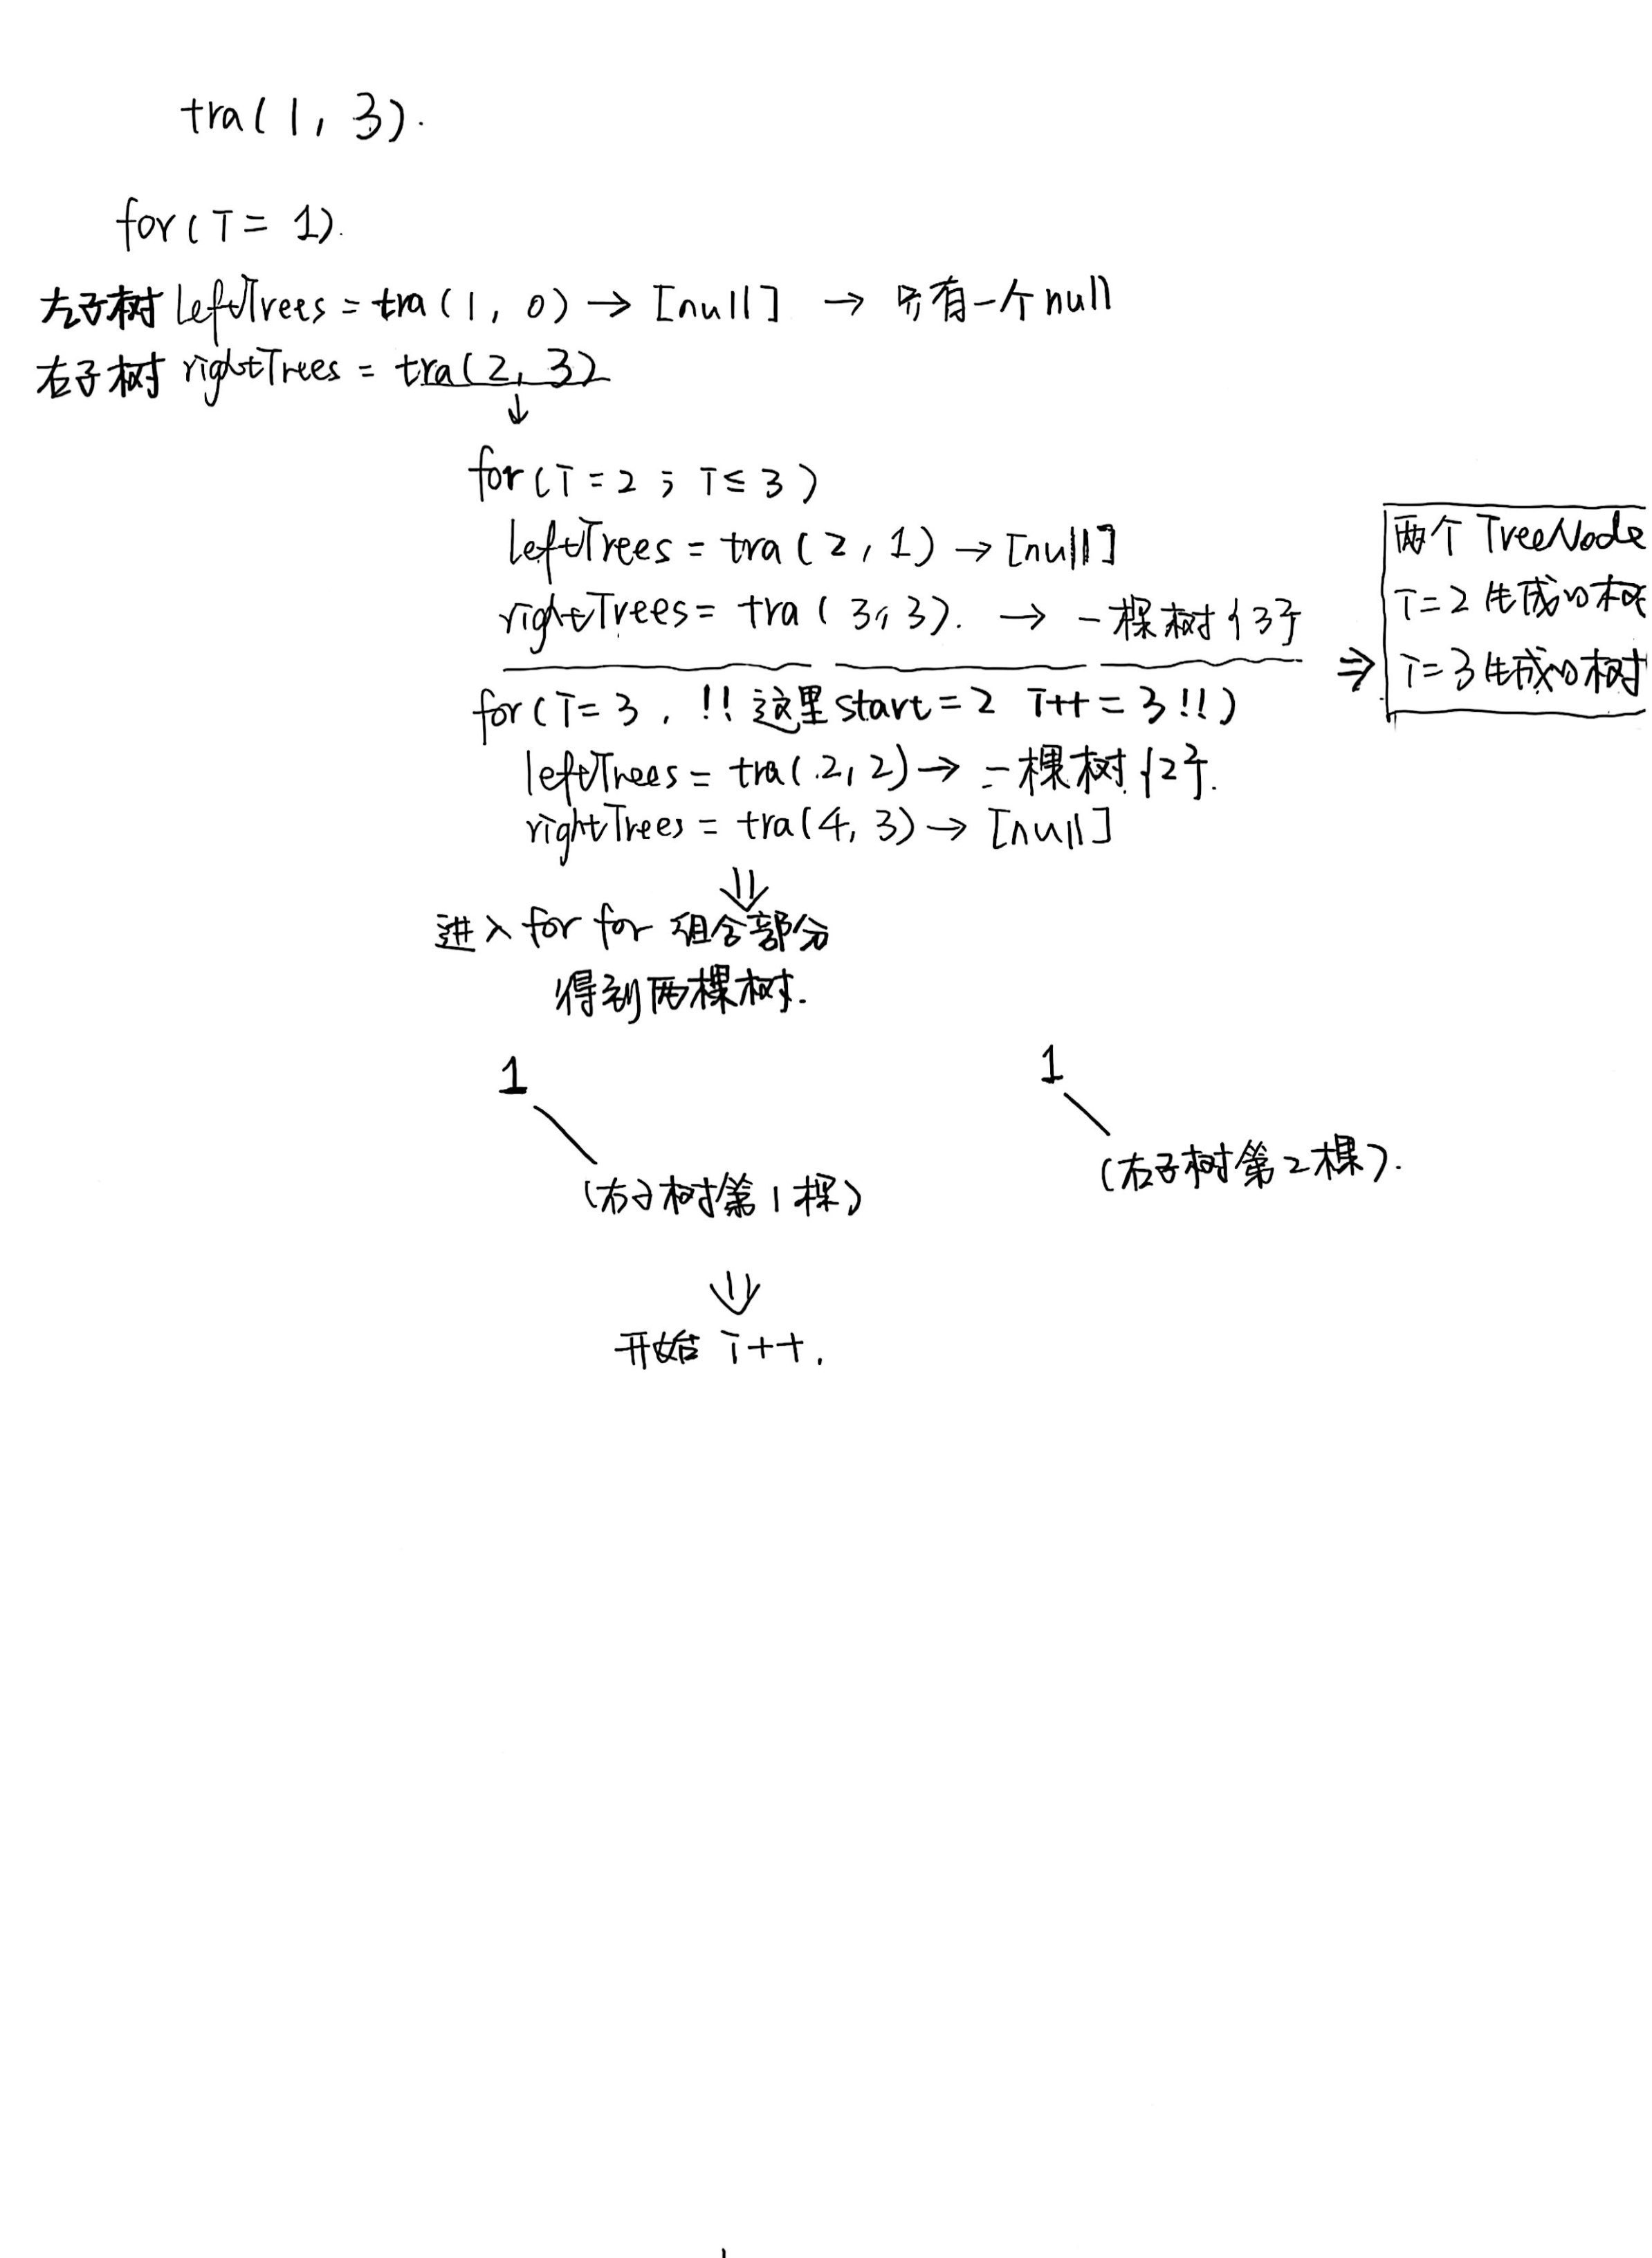 tra(1, 3).
for(i = 1).
左子树 leftTrees = tra(1, 0) → [null] → 只有一个null
右子树 rightTrees = tra(2, 3)
↓
for(i = 2; i ≤ 3)
leftTrees = tra(2, 1) → [null]
rightTrees = tra(3, 3). → 一棵树{3}
for(i = 3, !! 这里start = 2 i++ = 3 !!)
leftTrees = tra(2, 2) → 一棵树{2}.
rightTrees = tra(4, 3) → [null]
⇒
两个 TreeNode
i = 2 生成的树
i = 3 生成的树
⇓
进入 for for 组合部分
得到两棵树.
1
(右子树第1棵)
1
(右子树第2棵).
⇓
开始 i++.